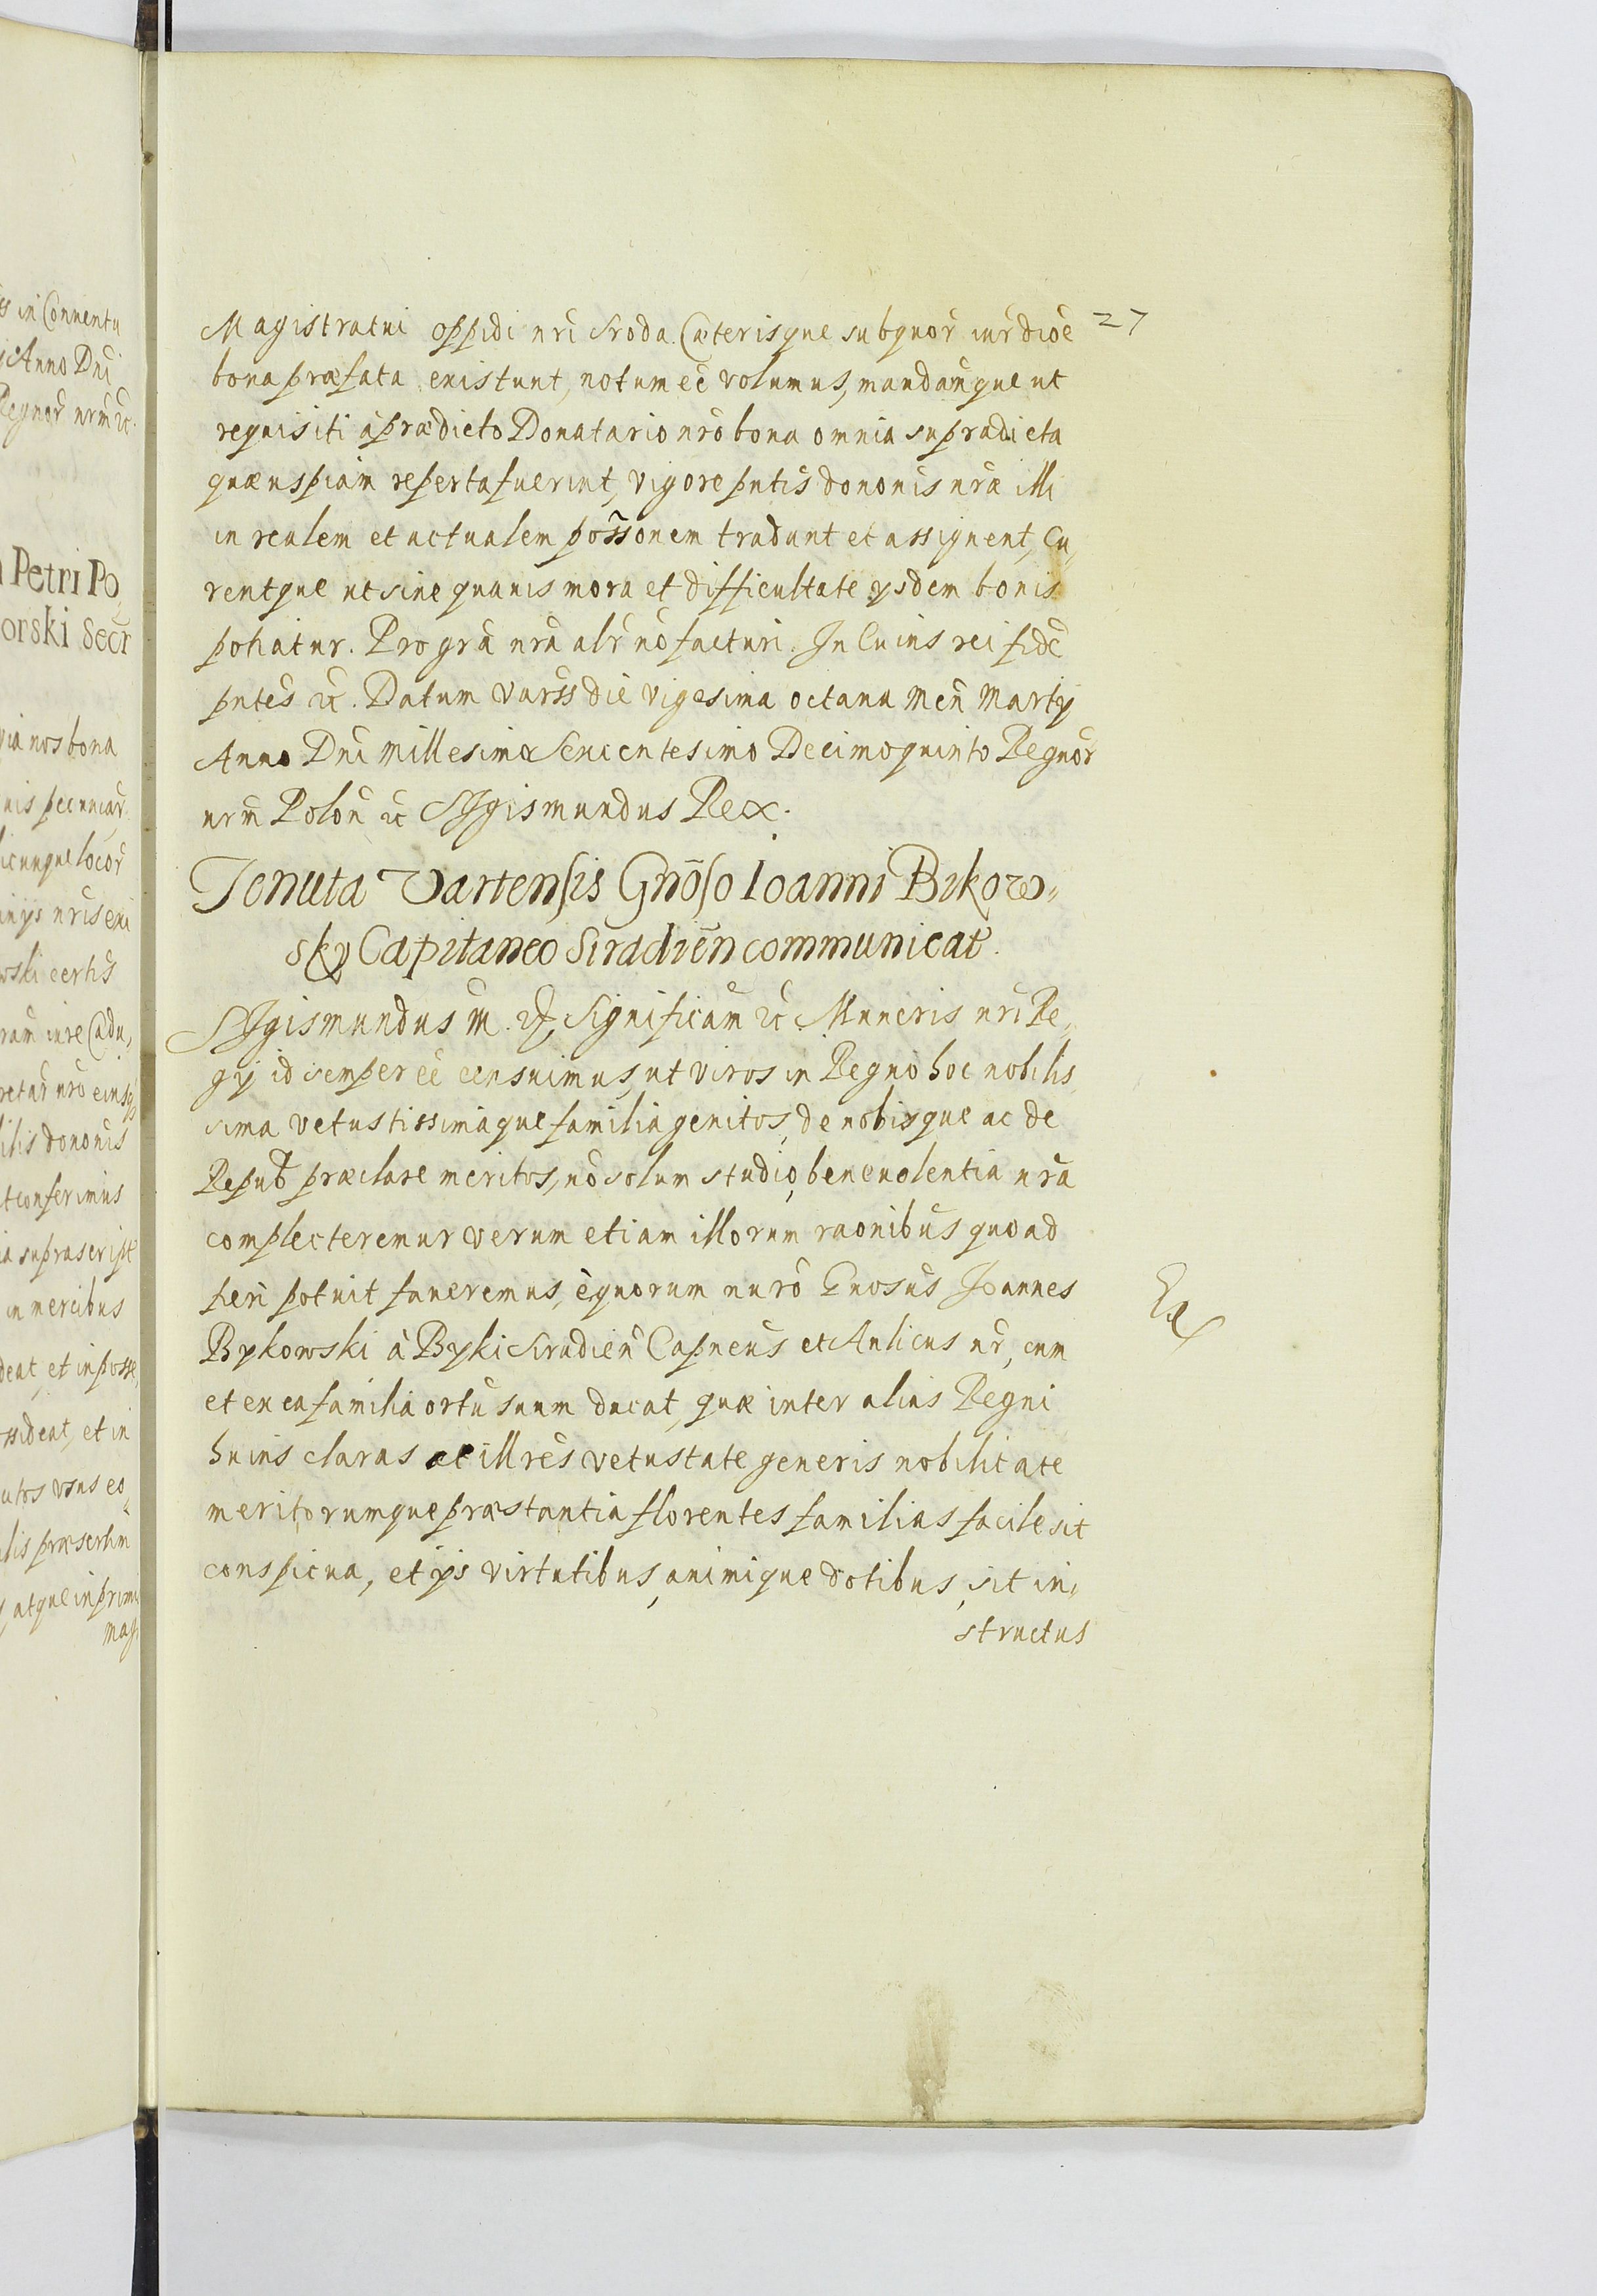 ss in Conuentu
Anno Dni
Regnor nrm ɛc.
Petri Po,
orski Secr
via nos bona
nis pecuniar
icunque locor
inys nris exi
wski certis
ram iure Cadu,
retar nro eiusq
ilis dononis
t conferimus
ia suprascript
in mercibus
deat, et in posse,
ssideat, et in
utos vsus eo,
lis præsertim
atque inprimis
mag
27
Magistratui oppidi nri Sroda. Cæterisque sub quor iurdioe
bona præfata existunt, notum eē volumus, mandamque ut
requisiti à prædicto Donatario nrō bona omnia supradicta
quæ uspiam reperta fuerint, vigore pntis dononis nræ illi
in realem et actualem possonem tradant et assignent, Cu,
rentque ut sine quauis mora et difficultate ysdem bonis
potiatur. Pro gra nra alr nō facturi. In Cuius rei fidē
pntes ɛc. Datum Varss die vigesima octaua Men Marty
Anno Dni Millesimo Sexcentesimo Decimoquinto Regnor
nrm Polon ɛc SIgismundus Rex.
Tenuta Vartensis Gnōso Ioanni Bikow=
sky Capitaneo Siradien communicat.
SIgismundus III. ɛc Significam ɛc Muneris nri Re,
gy id semper eē censuimus, ut viros in Regno hoc nobilis
sima vetustissimaque familia genitos, de nobisque ac de
Repub præclare meritos, nō solum studio, beneuolentia nra
complecteremur verum etiam illorum raonibus quoad
fieri potuit faueremus, è quorum nurō Gnosus Joannes
Bykowski à Byki Siradien Capneus et Aulicus nr, cum
et ex ea familia ortū suum ducat, quæ inter alias Regni
huius claras ac illres vetustate generis nobilitate
meritorumque præstantia florentes familias facile sit
conspicua, et ys virtutibus, animique dotibus, sit in,
structus
Ex